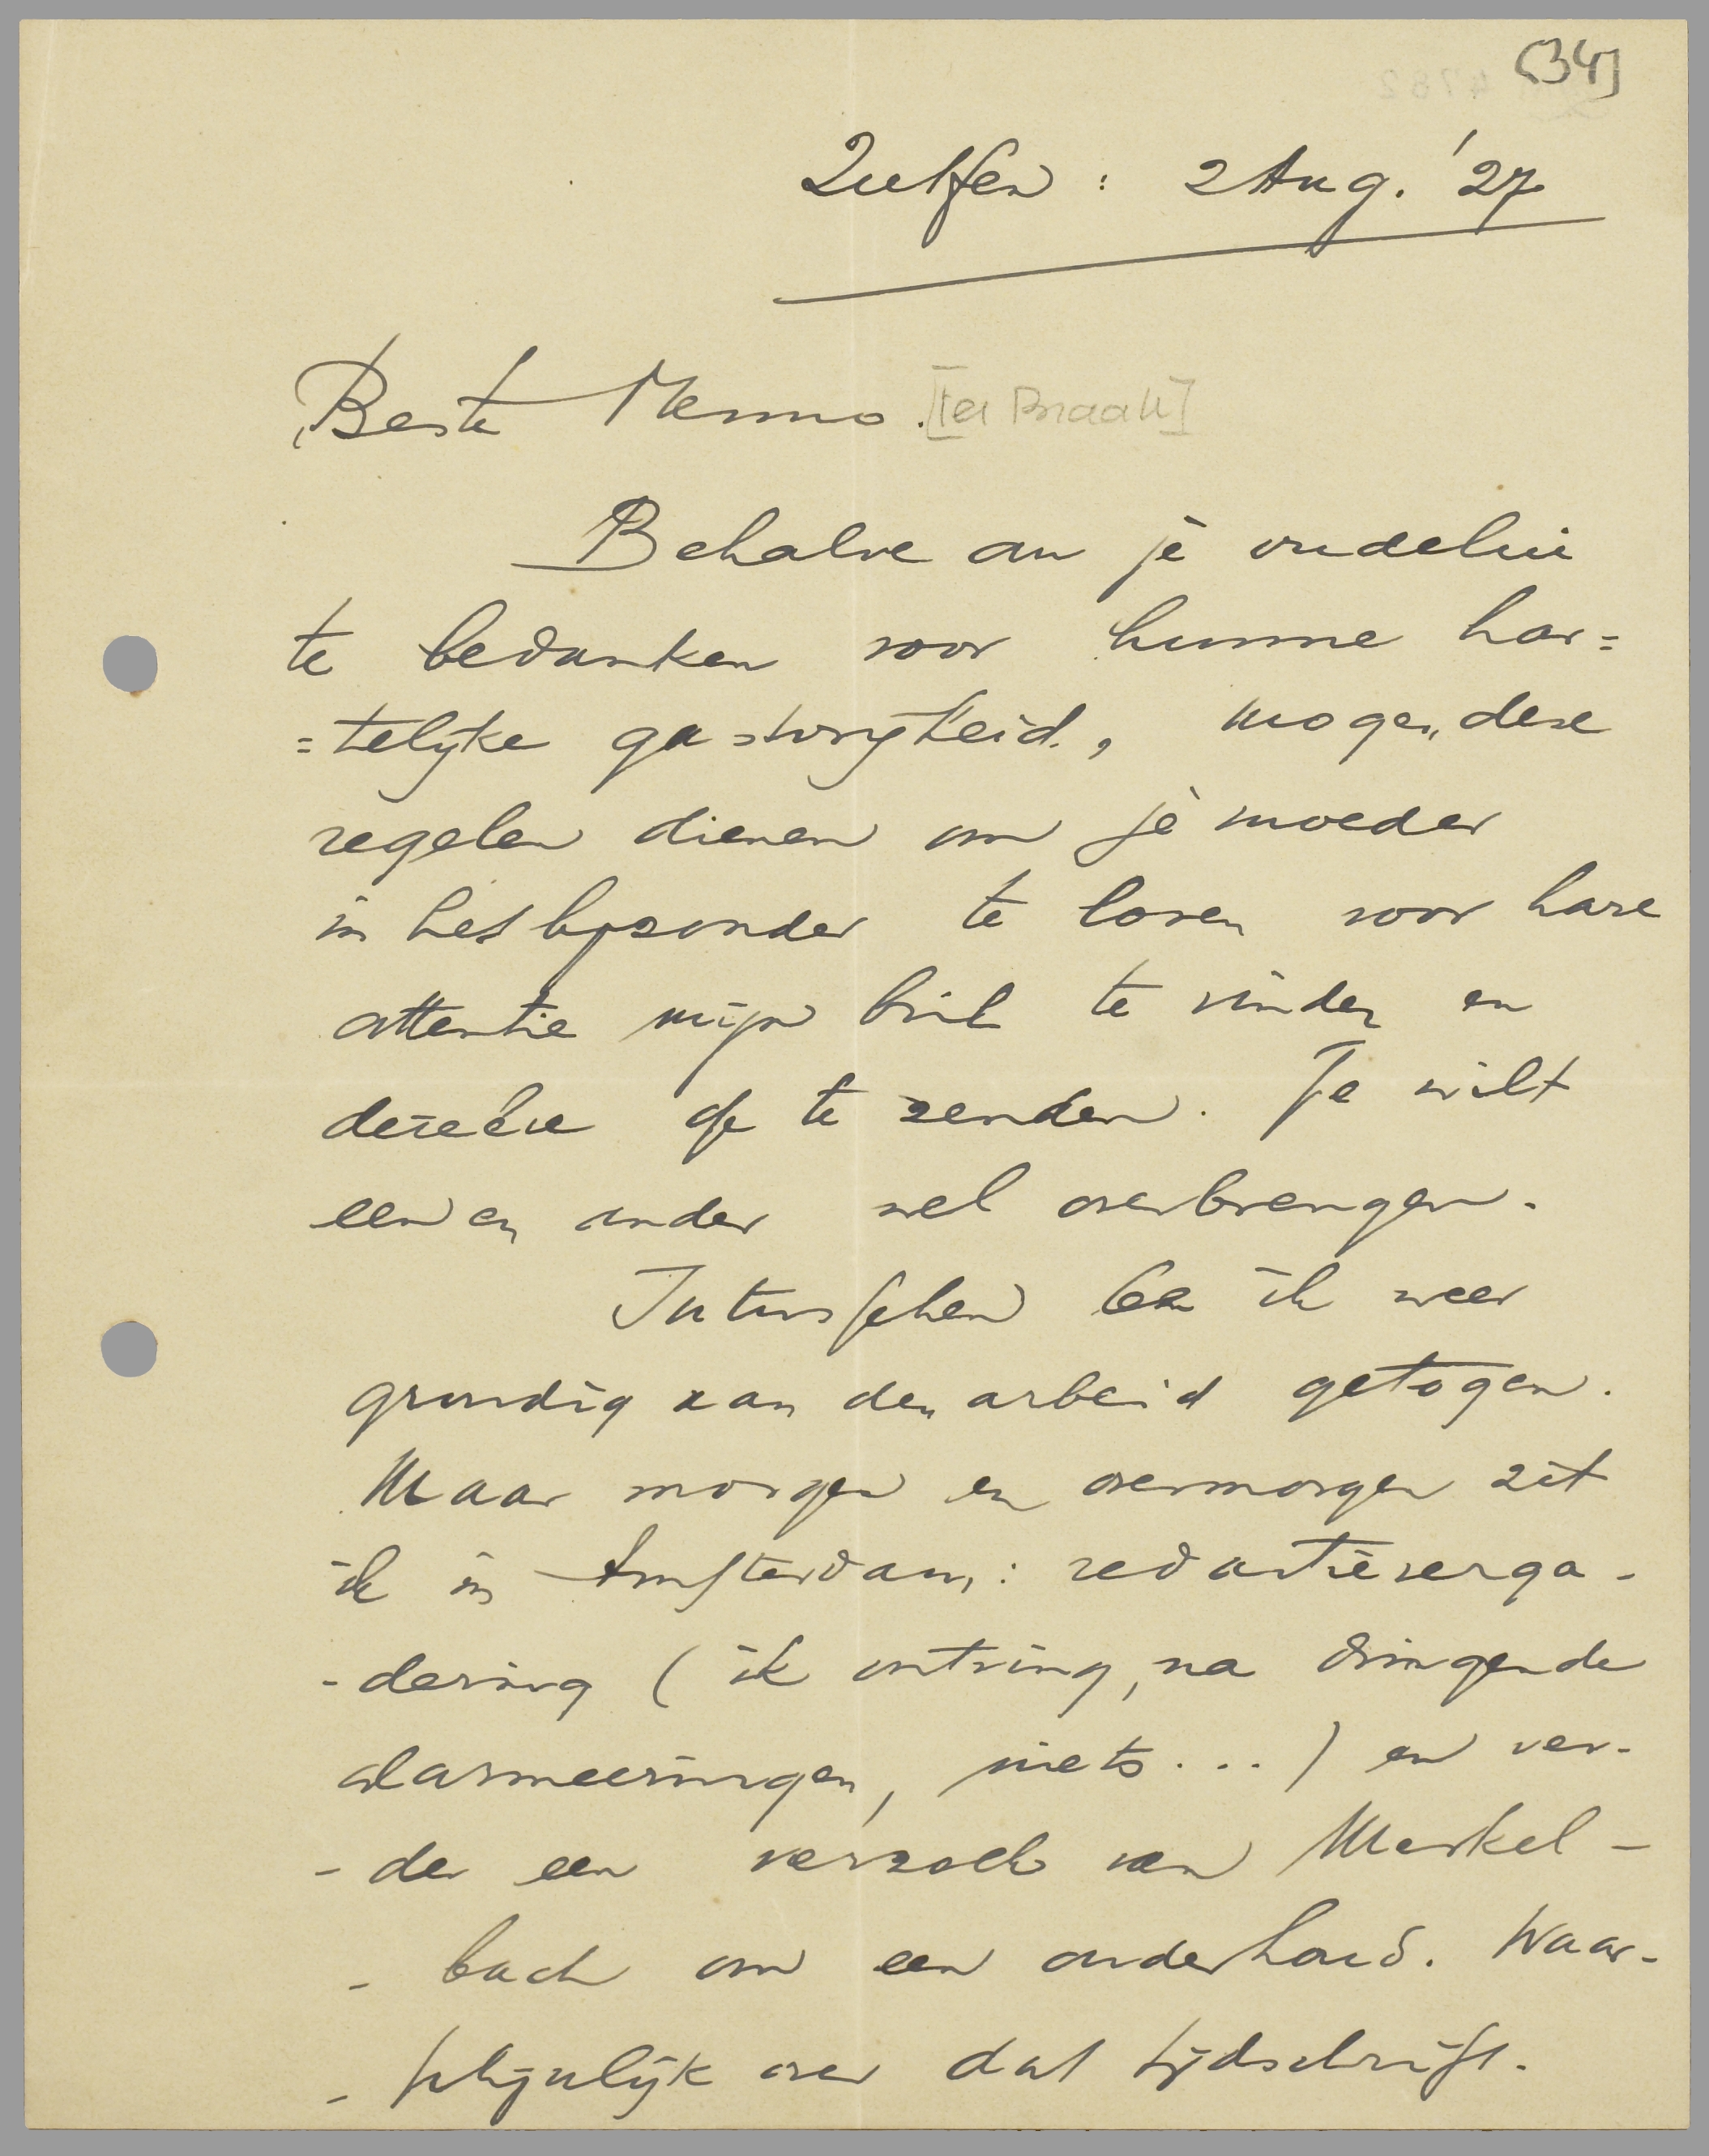 [34]
Zutfen: 2 Aug. '27
Beste Menno. [ter Braak]
Behalve om je oudelui
te bedanken voor hunne har=
=telijke gastvrijheid, mogen deze
regelen dienen om je moeder
in het bijzonder te loven voor hare
attentie mijn bril te vinden en
dezelve op te zenden. Je wilt
een en ander wel overbrengen.
Intusschen ben ik weer
grondig aan den arbeid getogen.
Maar morgen en overmorgen zit
ik in Amsterdam: redactieverga-
-dering (ik ontving, na dringende
alarmeeringen, niets...) en ver-
-der een verzoek van Merkel-
-bach om een onderhoud. Waar-
-schijnlijk over dat tijdschrift.